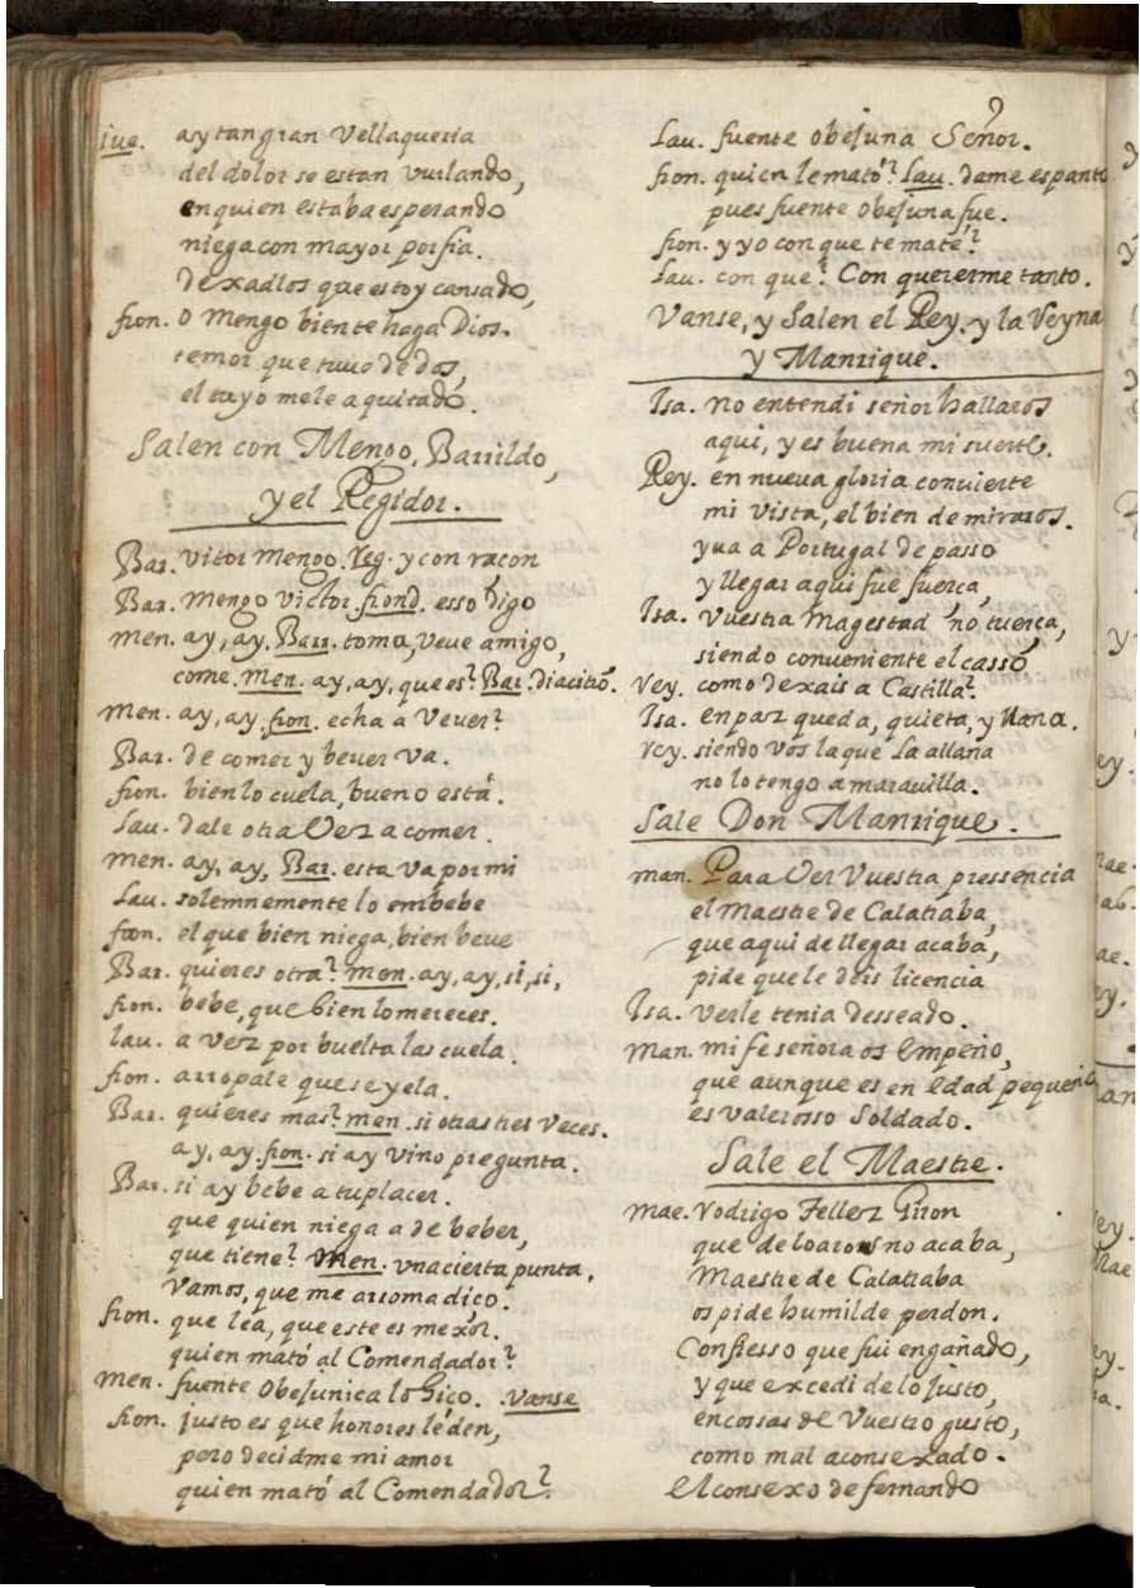 Jue. ay tan gran Vellaqueria
del dolor se estan vurlando,
en quien estaba esperando
niega con mayor porfia.
dexadlos que estoy cansado,
fron. O Mengo bien te haga Dios.
temor que tuuo de dos,
el tuyo mele a quitado.
Salen con Mengo, Barrildo,
y el Regidor.
Bar. vitor mengo. Reg. y con racon
Bar. Mengo victor. frond. esso digo
men. ay, ay. Barr. toma, veue amigo,
come. Men. ay, ay, que es? Bar. diacitró.
Men. ay, ay. fron. echa a Veuer?
Bar. de comer y beuer va.
fron. bien lo cuela, bueno está.
Lau. dale otra Vez a comer.
men. ay, ay, Bar. esta va por mi
Lau. solemnemente lo embebe
fron. el que bien niega, bien beue
Bar. quieres otra? men. ay, ay, si, si,
fron. bebe, que bien lo mereces.
lau. a vez por buelta las cuela.
fron. arropale que se yela.
Bar. quieres mas? men. si otras tres veces.
ay, ay. fron. si ay vino pregunta.
Bar. si ay bebe a tu placer.
que quien niega a de beber,
que tiene? Men. vna cierta punta,
Vamos, que me arromadiço.
fron. que lea, que este es mexor.
quien mató al Comendador?
men. fuente Obejunica lo hiço. Vanse
fron. justo es que honores le den,
pero decidme mi amor
quien mató al Comendador?
Lau. fuente obejuna Señor.
fron. quien le mató? Lau. dame espanto
pues fuente obejuna fue.
fron. y yo con que te mate?
Lau. con que? Con quererme tanto.
Vanse, y Salen el Rey, y la Reyna
y Manrique.
Isa. no entendi señor hallaros
aqui, y es buena mi suerte.
Rey. en nueua gloria conuierte
mi vista, el bien de miraros.
yua a Portugal de passo
y llegar aqui fue fuerça,
Isa. Vuestra Magestad no tuerça,
siendo conueniente el casso
Rey. como dexais a Castilla?
Isa. en paz queda, quieta, y llana.
rey. siendo vos la que la allana
no lo tengo a marauilla.
Sale Don Manrique.
man. Para Ver Vuestra pressencia
el Maestre de Calatraba,
que aqui de llegar acaba,
pide que le deis licencia
Isa. verle tenia desseado.
Man. mi fe señora os empeño,
que aunque es en edad pequeño
es valerosso Soldado.
Sale el Maestre.
Mae. Rodrigo Tellez Giron
que de loaros no acaba,
Maestre de Calatraba
os pide humilde perdon.
Confiesso que fui engañado,
y que excedi de lo justo,
en cossas de Vuestro gusto,
como mal aconsexado.
el consexo de fernando